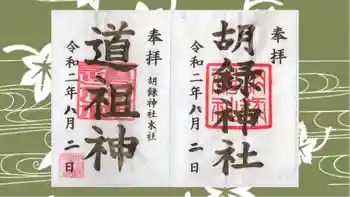 奉拝
胡録神社
令和二年八月二日
奉拝
胡録神社末社
道祖神
令和二年八月二日